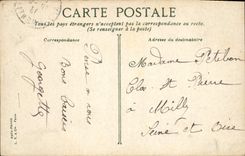 CARTE POSTALE
Tous les pays étrangers n'acceptent pas la correspondance au recto.
(Se renseigner à la poste)
Correspondance
Adresse du destinataire
Pense à vous
Bons Baisers
Georgette
Madame Petitbon
Clos St Pierre
à Milly
Seine et Oise